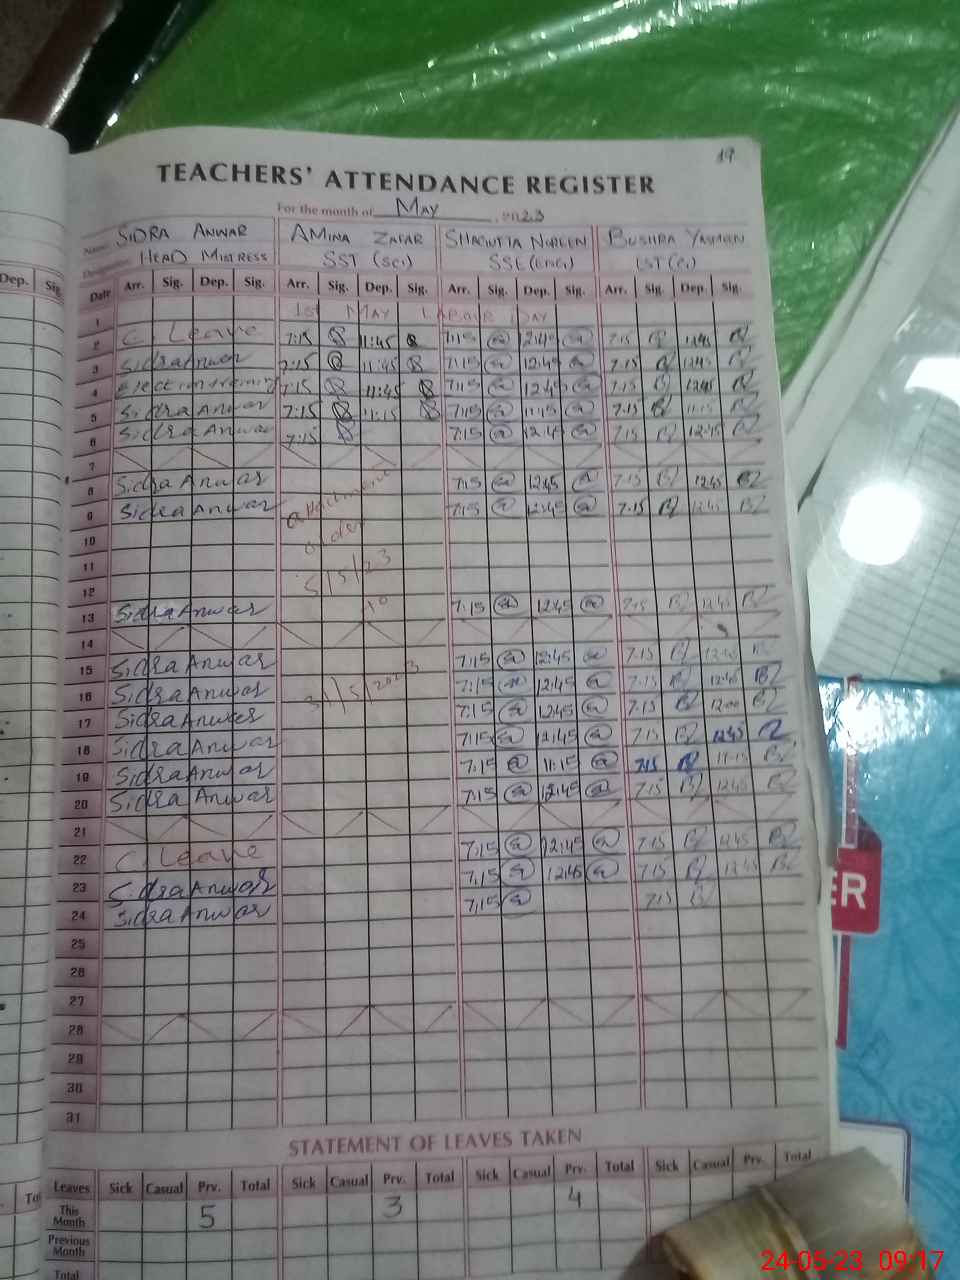 19
TEACHERS' ATTENDANCE REGISTER
For the month of May, 2023
Name SIDRA ANWAR AMINA ZAFAR BUSHRA YASMEEN
Designation HEAD MISTRESS SST (Sci)
Dep. Sig.
Date Arr. Sig. Dep. Sig. Arr. Sig. Dep. Sig. Arr. Sig. Dep. Sig. Arr. Sig. Dep. Sig.
1 1st MAY LABOUR DAY
2 C. Leave 7:15 11:45 7:15 12:45 7:15 12:45
3 Sidra Anwar 7:15 11:45 7:15 12:45 7:15 12:45
4 election training 7:15 11:45 7:15 12:45 7:15 12:45
5 Sidra Anwar 7:15 11:15 7:15 11:15 7:15 11:15
6 Sidra Anwar 7:15 7:15 12:45 7:15 12:45
7
8 Sidra Anwar 7:15 12:45 7:15 12:45
9 Sidra Anwar Attachment 7:15 12:45 7:15 12:45
10 order
11
12 5/5/23
13 Sidra Anwar to 7:15 12:45 7:15 12:45
14
15 Sidra Anwar 7:15 12:45 7:15 12:45
16 Sidra Anwar 31/5/2023 7:15 12:45 7:15 12:45
17 Sidra Anwar 7:15 12:45 7:15 12:00
18 Sidra Anwar 7:15 12:45 7:15 12:45
19 Sidra Anwar 7:15 11:15 7:15 11:15
20 Sidra Anwar 7:15 12:45 7:15 12:45
21
22 C. Leave 7:15 12:45 7:15 12:45
23 Sidra Anwar 7:15 12:45 7:15 12:45
24 Sidra Anwar 7:15 7:15
25
26
27
28
29
30
31
STATEMENT OF LEAVES TAKEN
Leaves Sick Casual Prv. Total Sick Casual Prv. Total Sick Casual Prv. Total Sick Casual Prv. Total
This Month 5 3 4
Previous Month
Total
ER
24-05-23 09:17